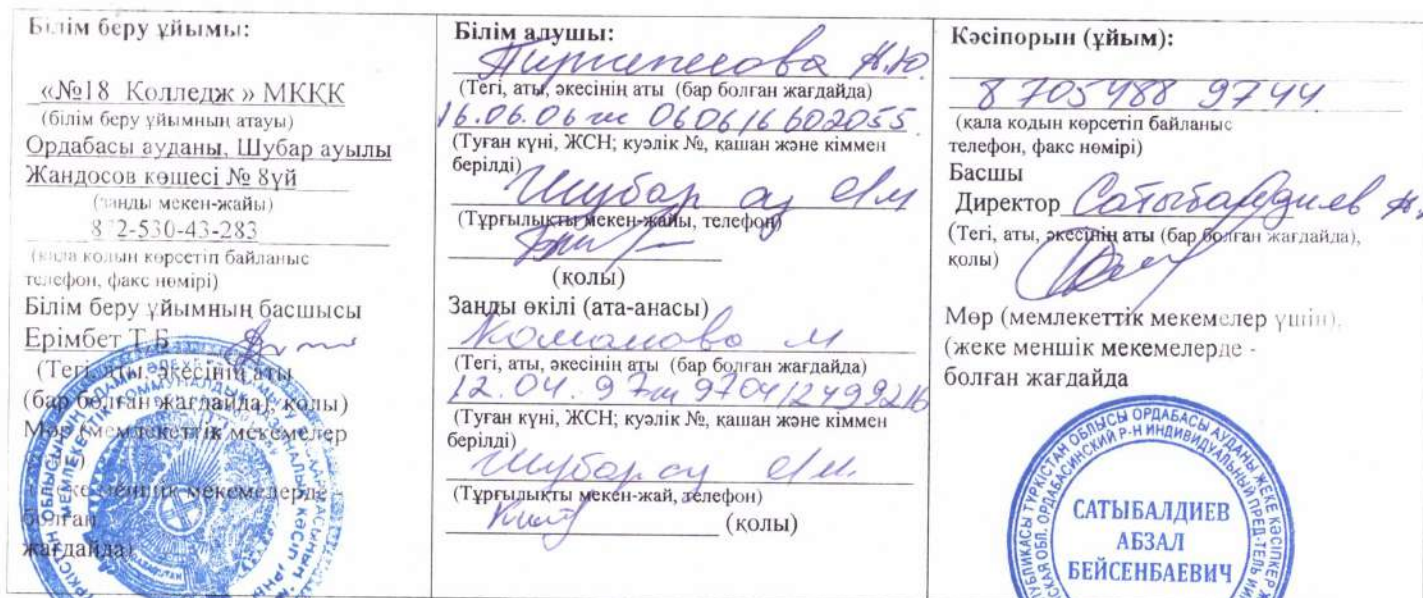 Білім беру ұйымы:
«№18 Колледж » МКҚК
(білім беру ұйымның атауы)
Ордабасы ауданы, Шубар ауылы
Жандосов көшесі № 8үй
(заңды мекен-жайы)
8 72-530-43-283
(қала кодын көрсетіп байланыс
телефон, факс нөмірі)
Білім беру ұйымның басшысы
Ерімбет Т.Б
(Тегі, аты, әкесінің аты
(бар болған жағдайда), қолы)
Мөр (мемлекеттік мекемелер
меншік мекемелерде
болған
жағдайда)
Білім алушы:
Н.Ю.
(Тегі, аты, әкесінің аты (бар болған жағдайда)
16.06.06 ж 060616602055
(Туған күні, ЖСН; куәлік №, қашан және кіммен
берілді)
Шубар ау
(Тұрғылықты мекен-жайы, телефон)
(қолы)
Заңды өкілі (ата-анасы)
М
(Тегі, аты, әкесінің аты (бар болған жағдайда)
12.04.97ж
(Туған күні, ЖСН; куәлік №, қашан және кіммен
берілді)
Шубар ау
(Тұрғылықты мекен-жай, телефон)
(қолы)
Кәсіпорын (ұйым):
8 705 488 9744
(қала кодын көрсетіп байланыс
телефон, факс нөмірі)
Басшы
Директор Сатыбалдиев
(Тегі, аты, әкесінің аты (бар болған жағдайда),
қолы)
Мөр (мемлекеттік мекемелер үшін),
(жеке меншік мекемелерде -
болған жағдайда
ОБЛЫСЫ ОРДАБАСЫ АУДАНЫ ЖЕКЕ КӘСІПКЕР
ОБЛ. ОРДАБАСИНСКИЙ Р-Н ИНДИВИДУАЛЬНЫЙ ПРЕД-ТЕЛЬ
САТЫБАЛДИЕВ
АБЗАЛ
БЕЙСЕНБАЕВИЧ